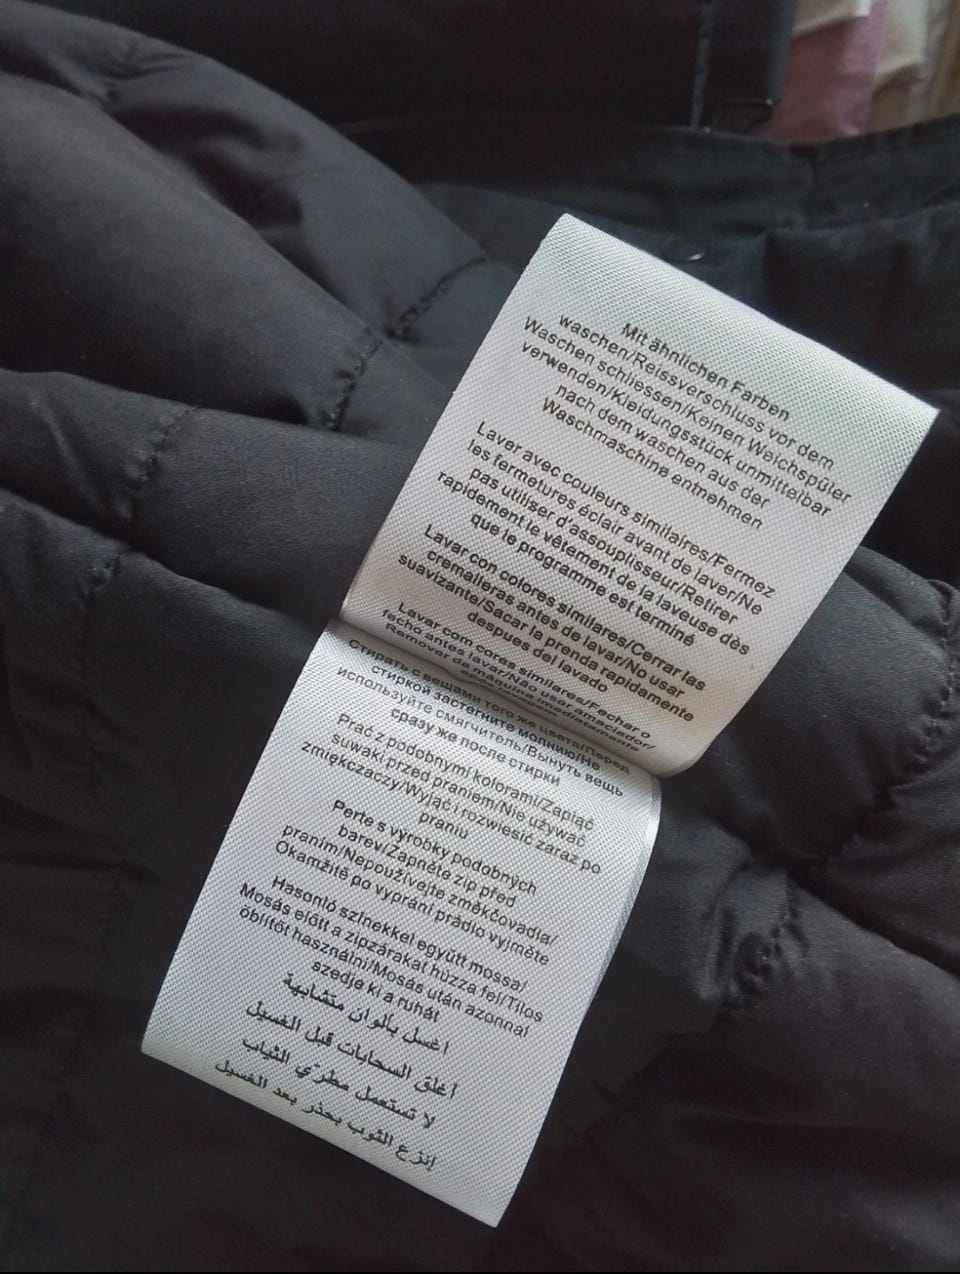 Mit ähnlichen Farben
waschen/Reissverschluss vor dem
Waschen schliessen/Keinen Weichspüler
verwenden/Kleidungsstück unmittelbar
nach dem waschen aus der
Waschmaschine entnehmen
Laver avec couleurs similaires/Fermez
les fermetures éclair avant de laver/Ne
pas utiliser d'assouplisseur/Retirer
rapidement le vêtement de la laveuse dès
que le programme est terminé
Lavar con colores similares/Cerrar las
cremalleras antes de lavar/No usar
suavizante/Sacar la prenda rapidamente
despues del lavado
Lavar com cores similares/Fechar o
fecho antes lavar/Não usar amaciador/
Remover da máquina imediatamente
após lavagem
Стирать с вещами того же цвета/Перед
стиркой застегните молнию/Не
используйте смягчитель/Вынуть вещь
сразу же после стирки
Prać z podobnymi kolorami/Zapiąć
suwaki przed praniem/Nie używać
zmiękczaczy/Wyjąć i rozwiesić zaraz po
praniu
Perte s výrobky podobných
barev/Zapněte zip před
praním/Nepoužívejte změkčovadla/
Okamžitě po vyprání prádlo vyjměte
Hasonló színekkel együtt mossa/
Mosás előtt a zipzárakat húzza fel/Tilos
öblítőt használni/Mosás után azonnal
szedje ki a ruhát
اغسل بألوان متشابهة
أغلق السحابات قبل الغسيل
لا تستعمل مطرّي الثياب
إنزع الثوب بحذر بعد الغسيل